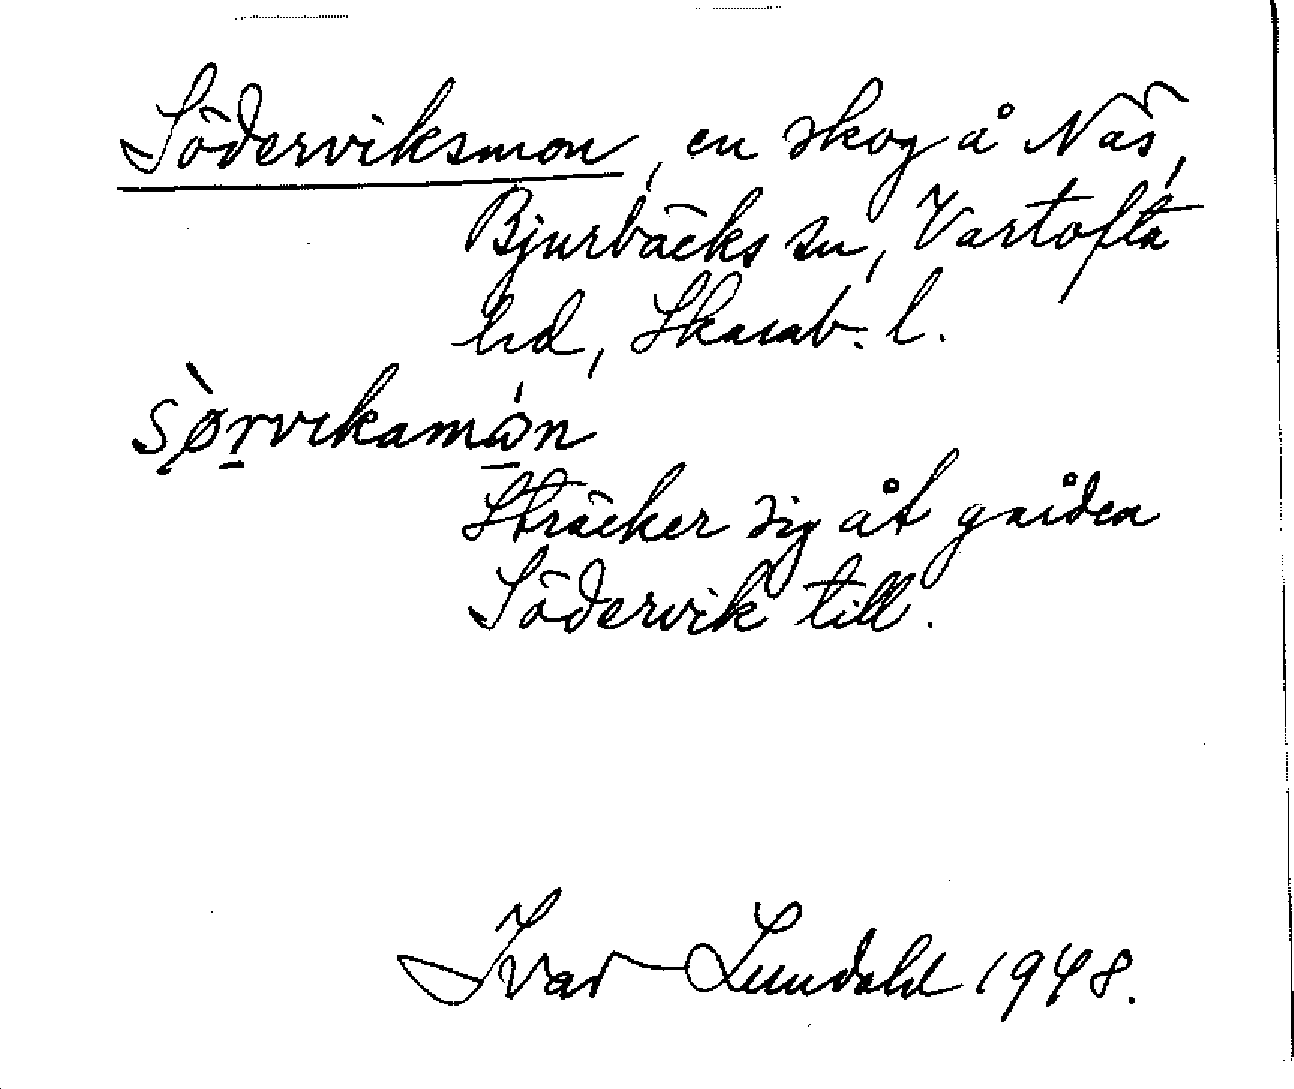 Söderviksmon, en skog å Näs,
Bjurbäcks sn, Vartofta
hd, Skarab. l.
sø̀rvikamɷ́n
Sträcker sig åt gården
Södervik till.
Ivar Lundahl 1948.